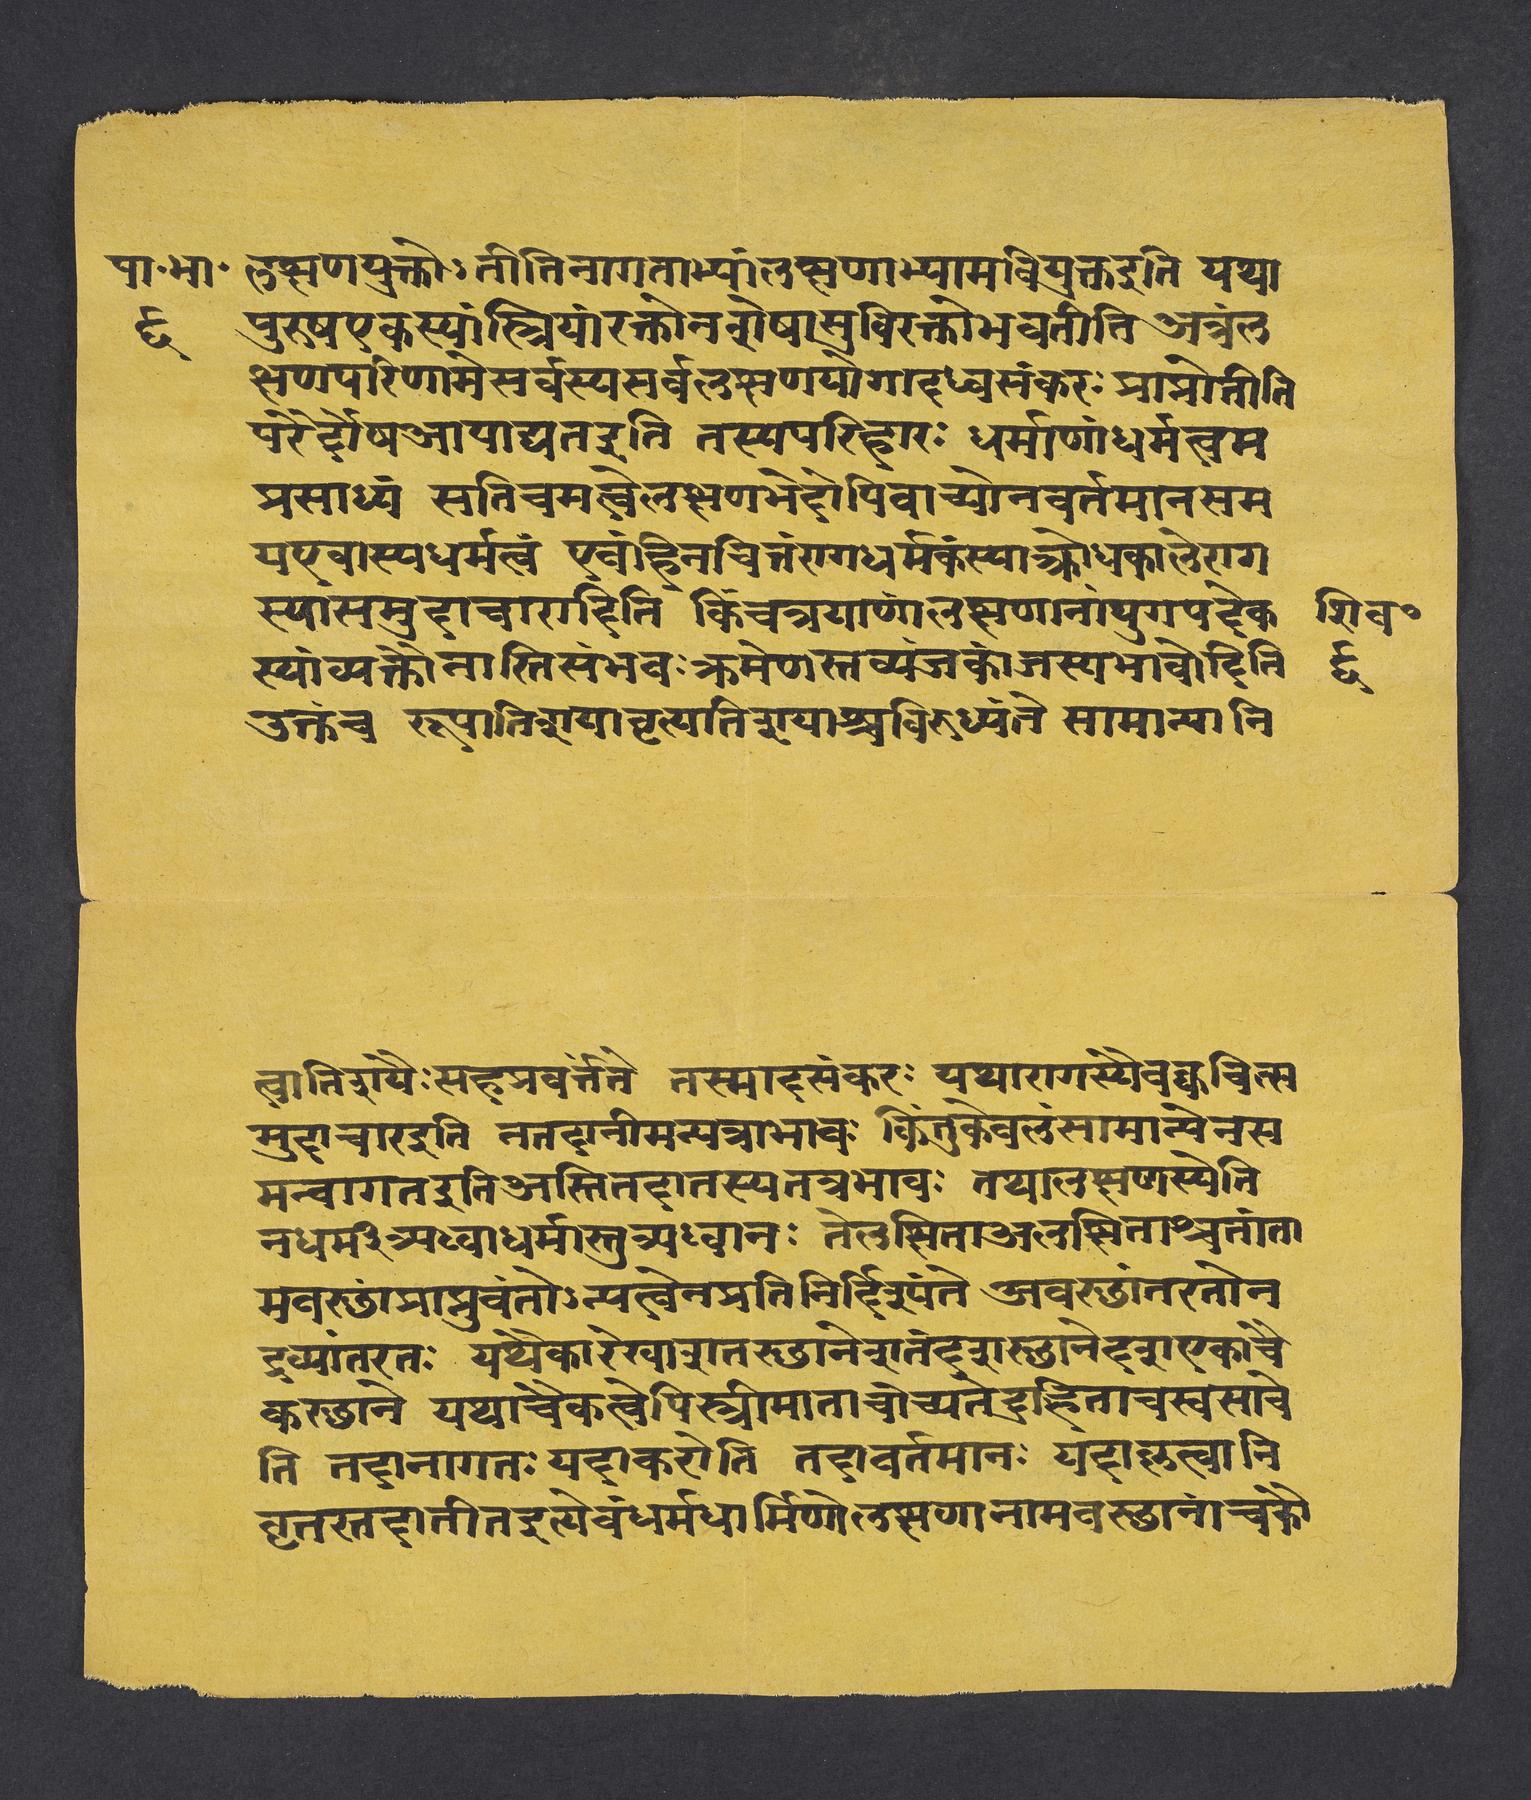 पा॰भा॰ लक्षणयुक्तोऽतीतिनागताभ्यांलक्षणाभ्यामवियुक्तइति यथा
६ पुरुषएकस्यांस्त्रियांरक्तोनशेषासुविरक्तोभवतीति अत्रंल
क्षणपरिणामेसर्वस्यसर्वलक्षणयोगादध्वसंकरः प्राप्नोतीति
परैर्दोषआपाद्यतइति तस्यपरिहारः धर्माणांधर्मत्वम
प्रसाध्यं सतिचमत्वेलक्षणभेदोपिवाच्योनवर्तमानसम
यएवास्यधर्मत्वं एवंहिनचित्तंरागधर्मकंस्याक्रोधकालेराग
स्यासमुदाचारादिति किंचत्रयाणांलक्षणानांयुगपदेक शिव॰
स्यांव्यक्तौनास्तिसंभवः क्रमेणस्तव्यंजकांजस्यभावोदिति ६
उक्तंच रूपातिशयावृत्यतिशयाश्चविरुध्यंते सामान्यानि
त्वातिशयैःसहप्रवर्त्तते तस्मादसंकरः यथारागस्यैवक्वचित्स
मुदाचारइति नतदानीमन्यत्राभावः किंतुकेवलंसामान्येनस
मन्वागतइतिअस्तितदातस्यतत्रभावः तथालक्षणस्येति
नधर्मीत्र्यध्वाधर्मास्तुत्र्यध्वानः तेलक्षिताअलक्षिताश्चतांता
मवस्थांप्राप्नुवंतोऽन्यत्वेनप्रतिनिर्दिश्यंते अवस्थांतरतोन
द्रव्यांतरतः यथैकारेखाशतस्थानेशतंदशस्थानेदशएकांचै
कस्थाने यथाचैकत्वेपिस्त्रीमाताचोच्यतेदुहिताचस्वसाचे
ति तदानागतः यदाकरोति तदावर्तमानः यदाकृत्वानि
वृतस्तदातीतइत्येवंधर्मधार्मिणोलक्षणानामवस्थानांचकौ